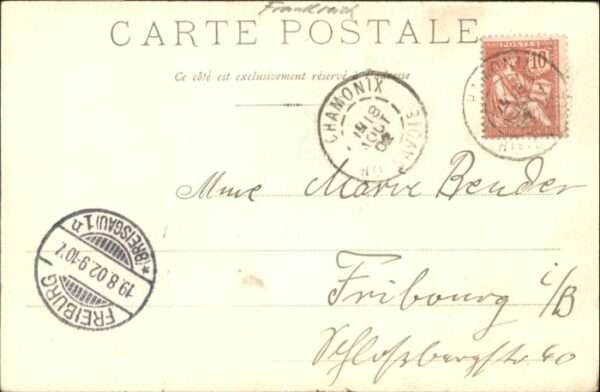 Frankreich
CARTE POSTALE
Ce côté est exclusivement réservé à l'adresse
POSTES
10
CHAMONIX
18
AOUT
02
Mme Marie Bender
FREIBURG
19.8.02.9-10V.
*(BREISGAU)1
Fribourg i/B
Schloßbergstr 40